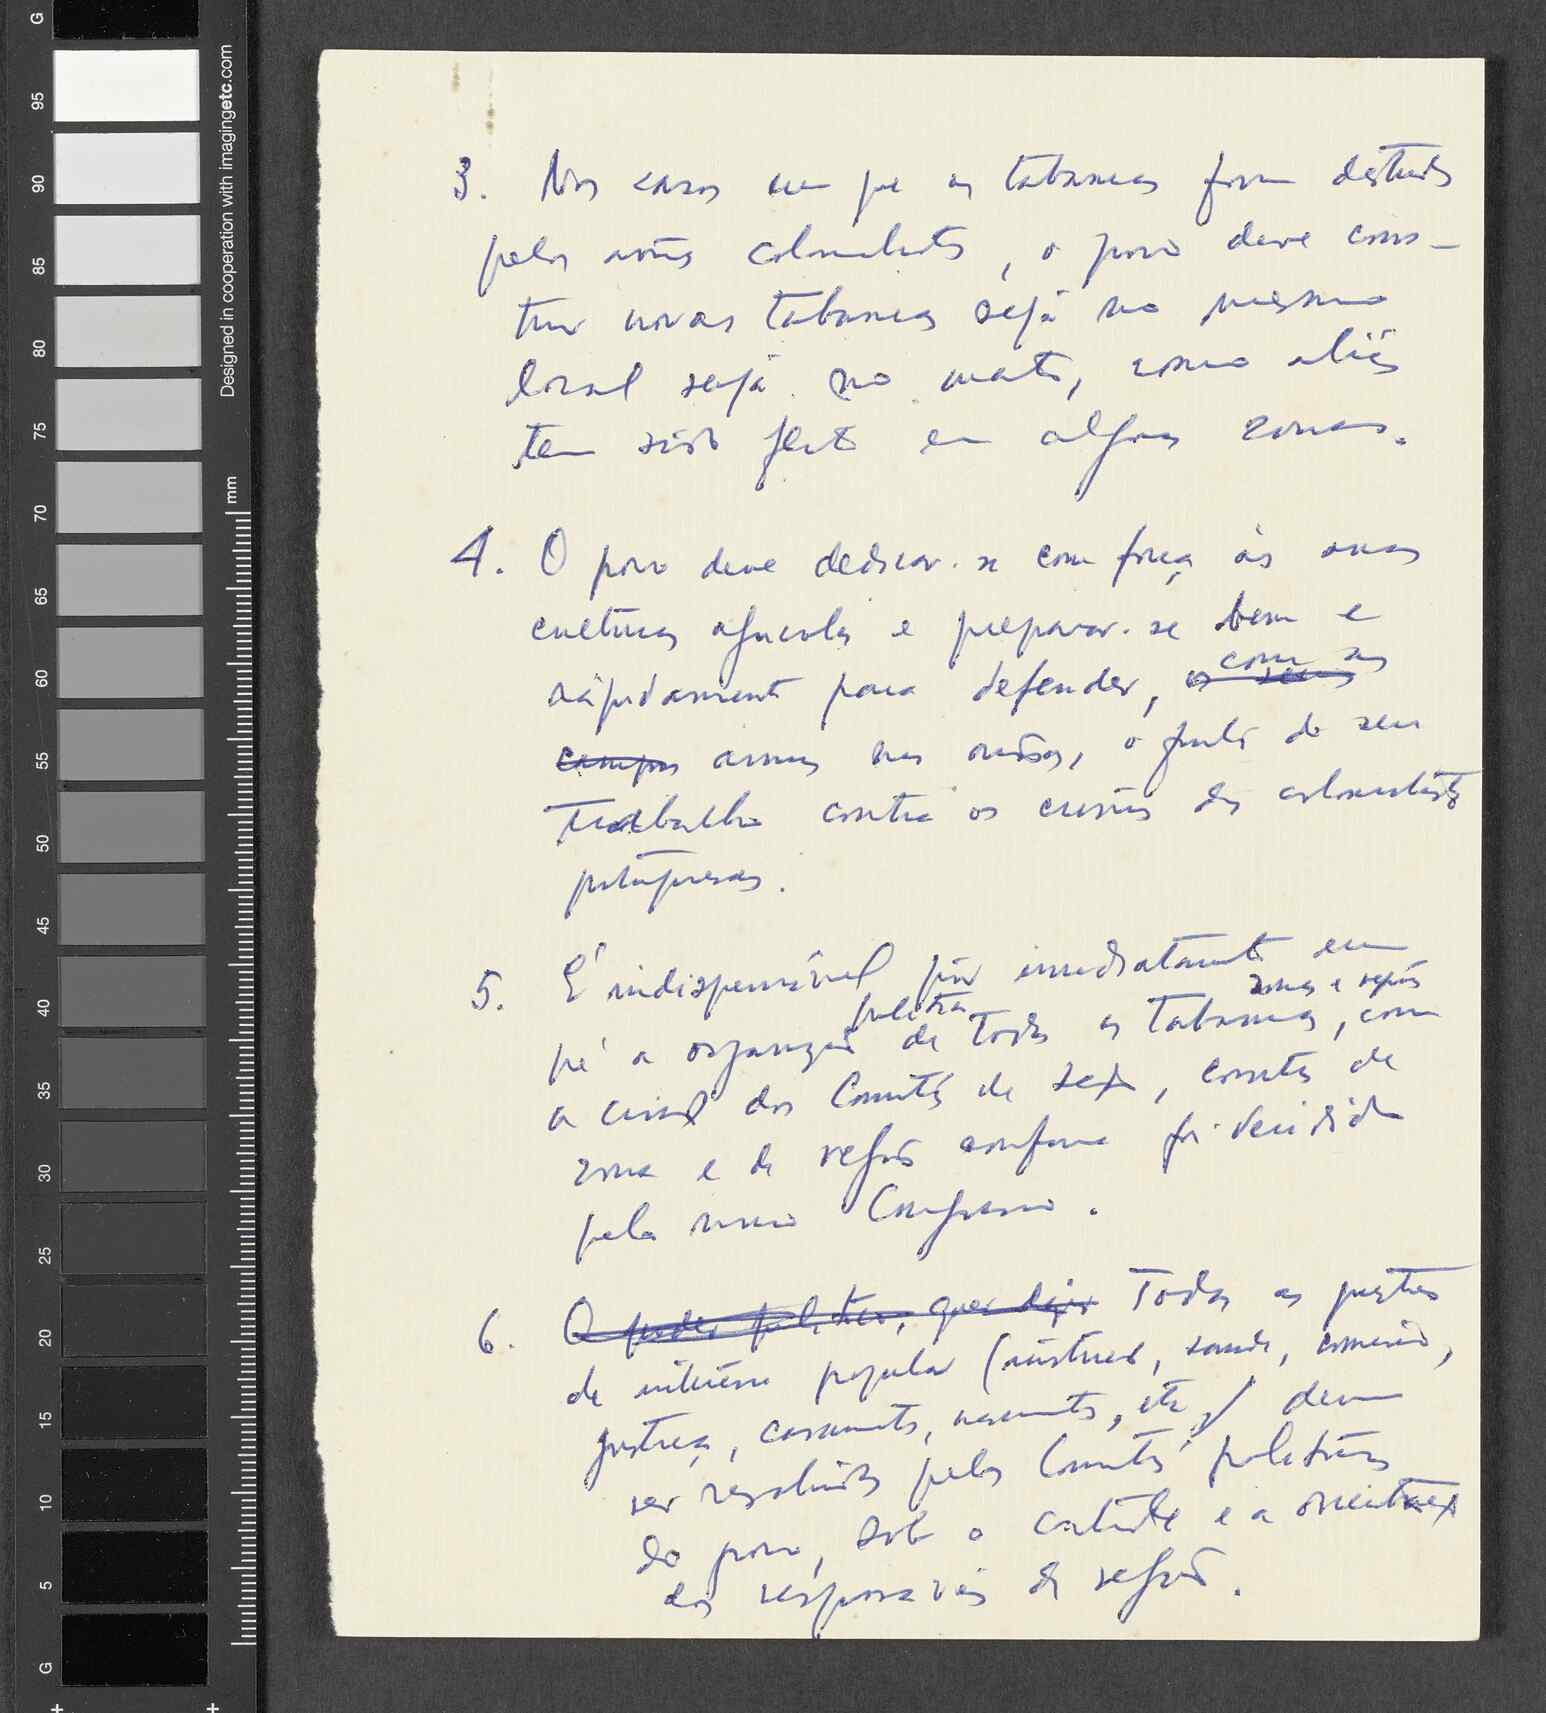 G
95
90
85
80
75
70
65
60
55
50
45
40
35
30
25
20
15
10
5
G
Designed in cooperation with imagingetc.com
mm
3. Nos casos em que as tabancas foram destruidas
pelos aviões colonialistas, o povo deve cons-
truir novas tabancas seja no mesmo
local seja no mato, como aliás
tem sido feito em algumas zonas.
4. O povo deve dedicar-se com força às suas
culturas agricolas e preparar-se bem e
ràpidamente para defender, os seus com as
campos armas nas mãos, o fruto do seu
trabalho contra os crimes dos colonialistas
portugueses.
5. É indispensável pôr imediatamente em
pé a organização politica de todas as tabancas, zonas e regiões, com
a criação dos Comités de secção, comités de
zona e de região conforme foi decidido
pelo nosso Congresso.
6. O poder politico, quer dizer Todas as questões
de interêsse popular (instrução, saude, comércio,
justiça, casamentos, nascimentos, etc.) devem
ser resolvidas pelos Comités politicos
do povo, sob o contrôle e a orientação
dos responsáveis da região.